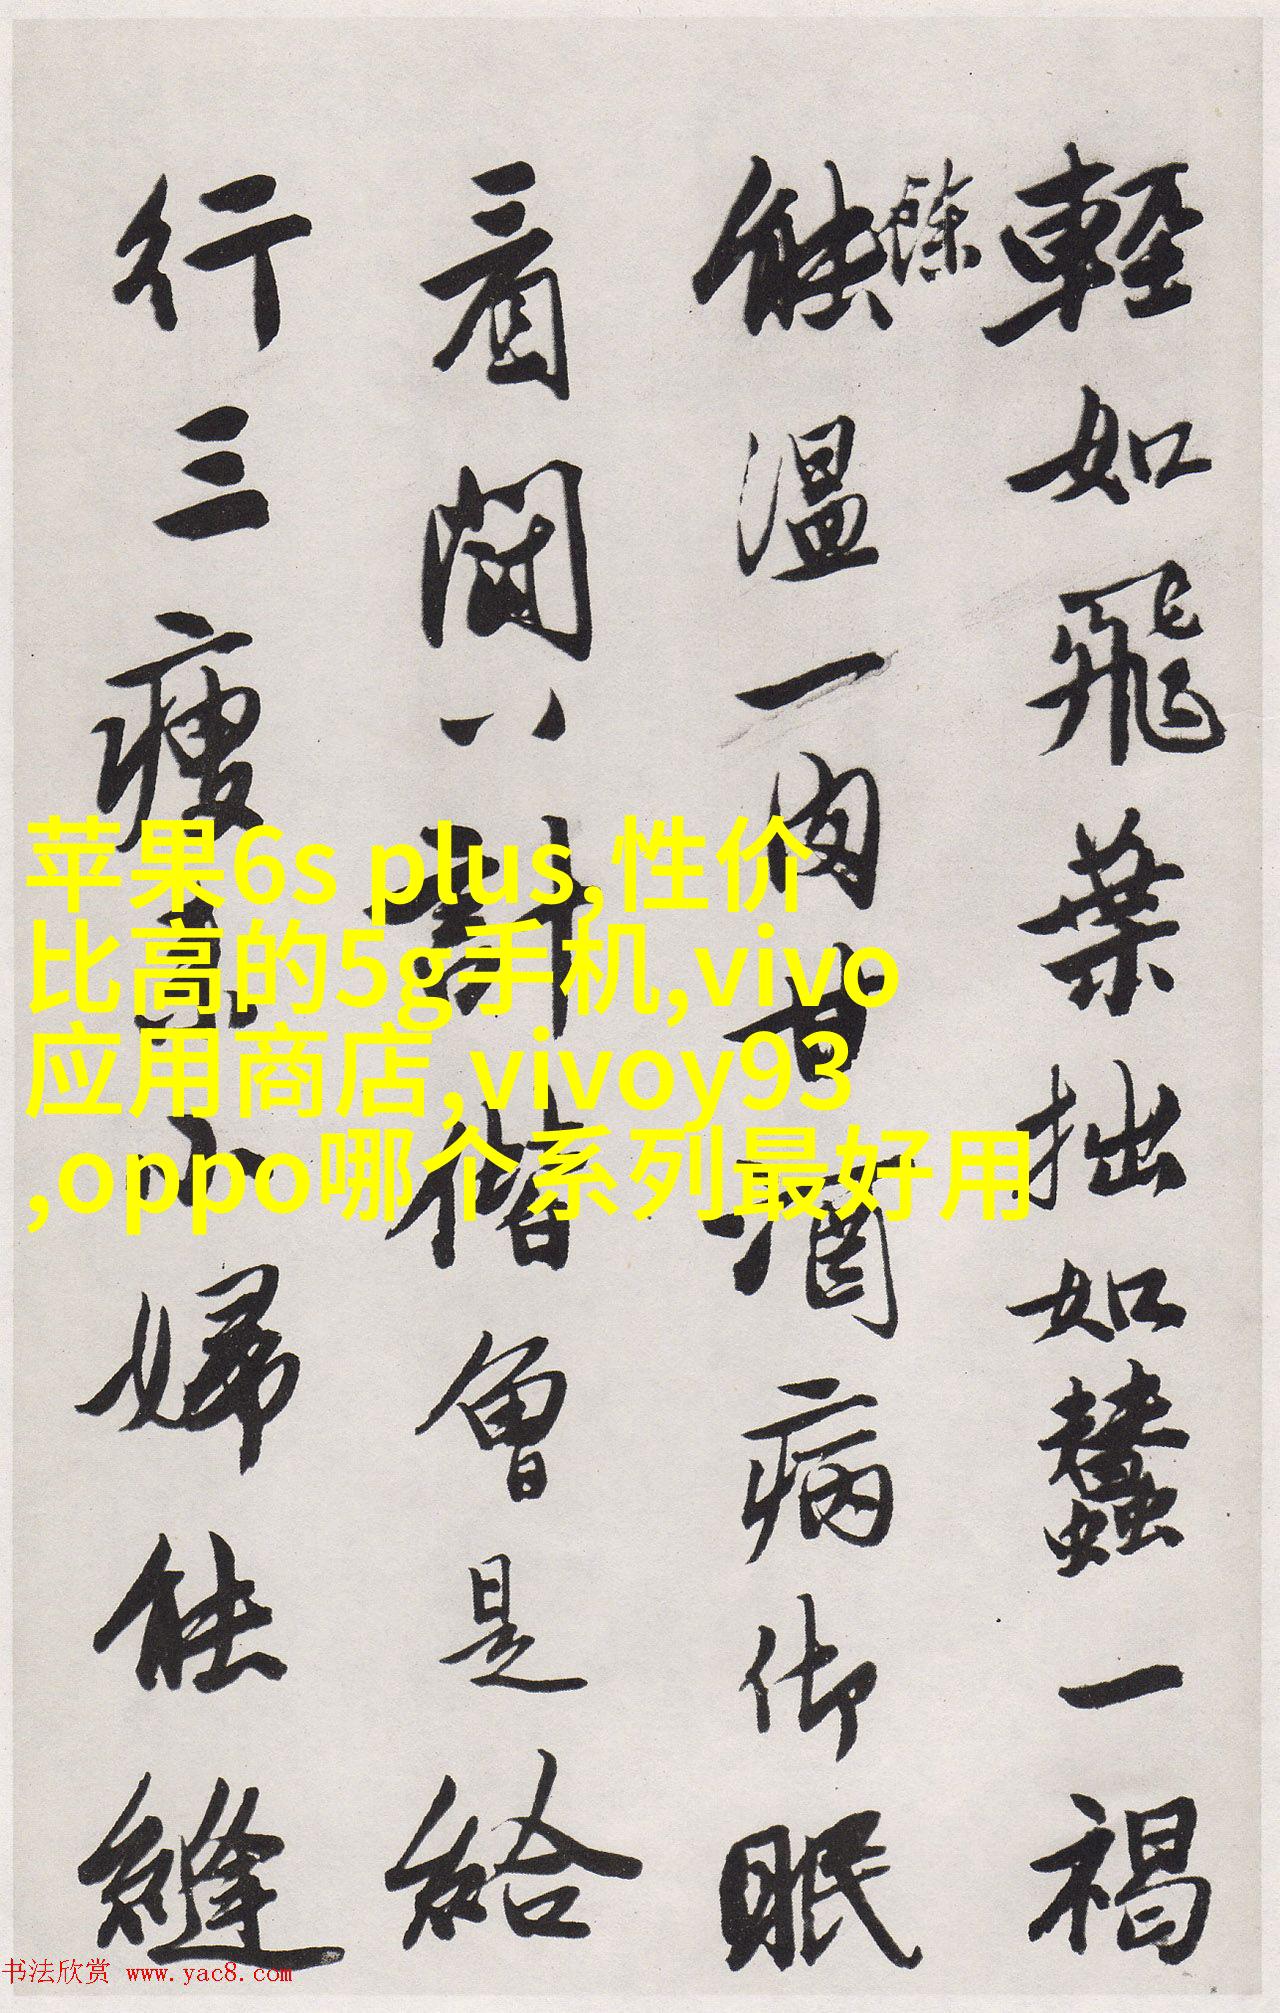 輕如飛葉拙如蠶一褐
餘
能温一肉古酒病仰眠
看開八對偕魯是給
行三瘦小婦能縫
苹果6s plus,性价
比高的5g手机,vivo
应用商店,vivoy93
,oppo哪个系列最好用
书法欣赏 www.yac8.com